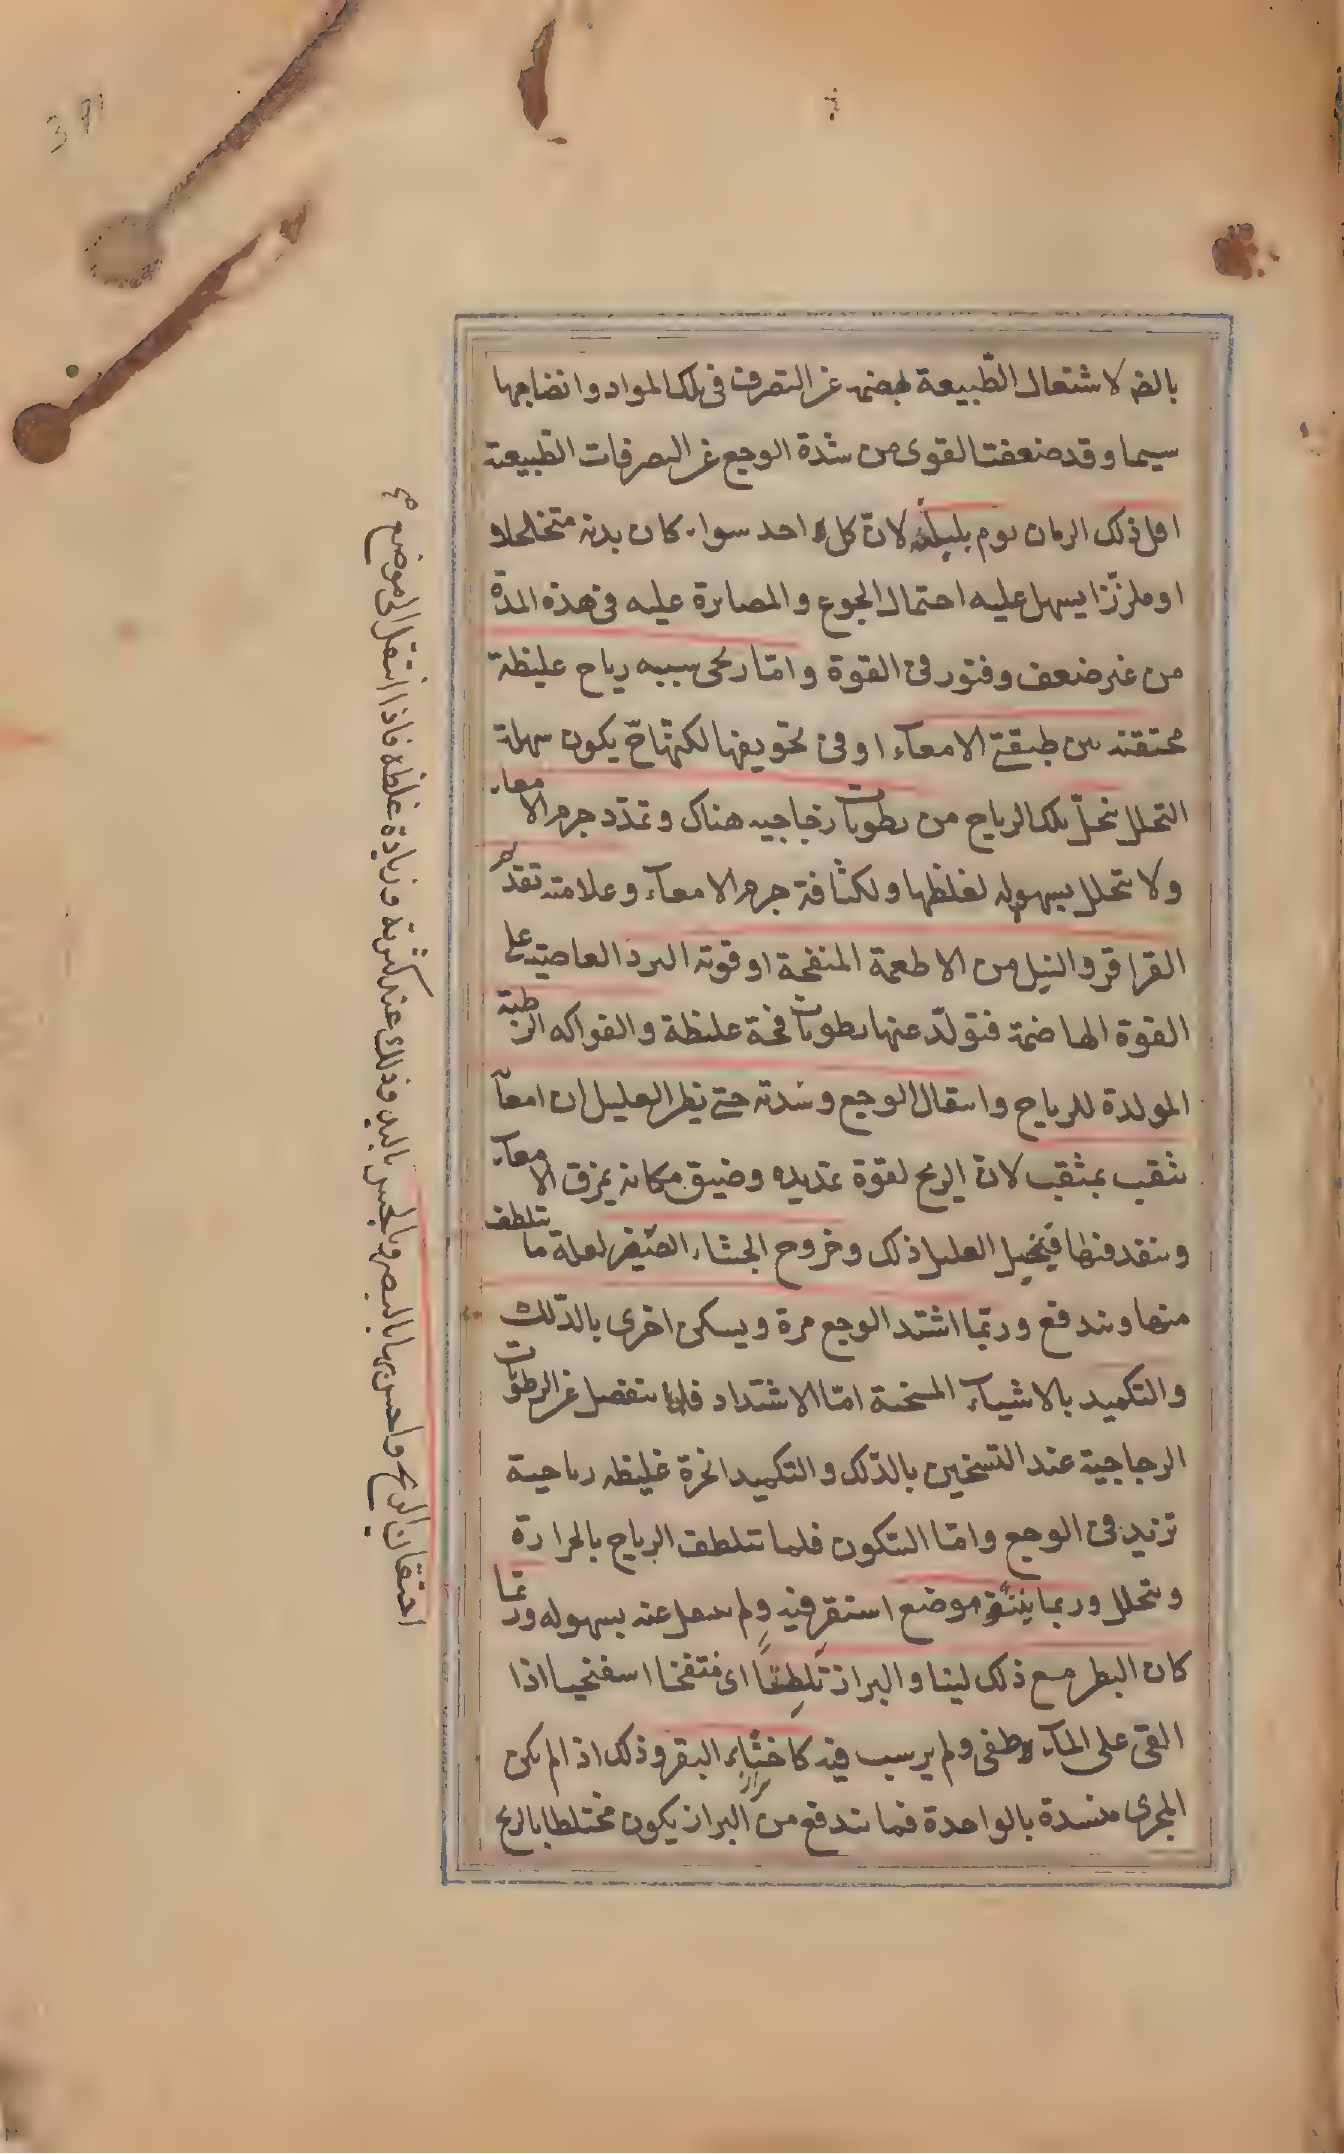 بالضه لاشتعال الطّبيعة بهضمه عن التصرف فی تلك المواد وانضاجها
سيما وقد ضعفت القوی من شدة الوجع عن التصرفات الطّبيعة
اقل ذلك الزمان يوم بليلة لانّ كل احد سواء كان بدنه متخلخلا
او ملززا يسهل عليه احتمال الجوع والمصابرة عليه فی هذه المدة
من غير ضعف وفتور فی القوة وامّا ريحی سببه رياح غليظة
محتقنة بين طبقتی الامعآء او فی تجويفها لكنهاح يكون سهلة
التحلل تتحلّل تلك الرياح من رطوبات زجاجيه هناك وتمدّد جرم الامعاء
ولا تتحلل بسهوله لغلظها ولكثافة جرم الامعآء وعلامته تقدم
القراقر والنيل من الاطعمة المنفخة او قوته البرد العاصية علی
القوة الهاضمة فتولّد عنها رطوبات فجة غليظة والفواكه الرطبة
المولدة للرياح وانتقال الوجع وشدته حتی يظن العليل ان امعآءه
تثقب بمثقب لانّ الريح لقوة تمديده وضيق مكانه يمزق الامعآء
وينفذ فيها فيتخيل العليل ذلك وخروج الجشاء الصّغير لعلة ما تتلطف
منها وتندفع وربّما اشتد الوجع مرة ويسكن اخری بالدّلك
والتكميد بالاشيآء المسخنة امّا الاشتداد فلما ينفصل عن الرطوبات
الزجاجية عند التسخين بالدّلك والتكميد ابخرة غليظه رياحية
تزيد فی الوجع وامّا السّكون فلما تتلطف الرياح بالحرارة
وتتحلل وربما ينتؤ موضع استقر فيه ولم ينتقل عنه بسهوله وربّما
كان البطن مع ذلك لينا والبراز ای منتفخا اسفنجيا اذا
القی علی المآء طفی ولم يرسب فيه كاخثاء البقر وذلك اذا لم يكن
المجری منسدة بالواحدة فما تندفع من البراز يكون مختلطا بالريح
احتقان الريح واحس بها بالبصر وبالجس باليد وذلك عند كثرته وزيادة غلظه فاذا انتقل الی موضع
391